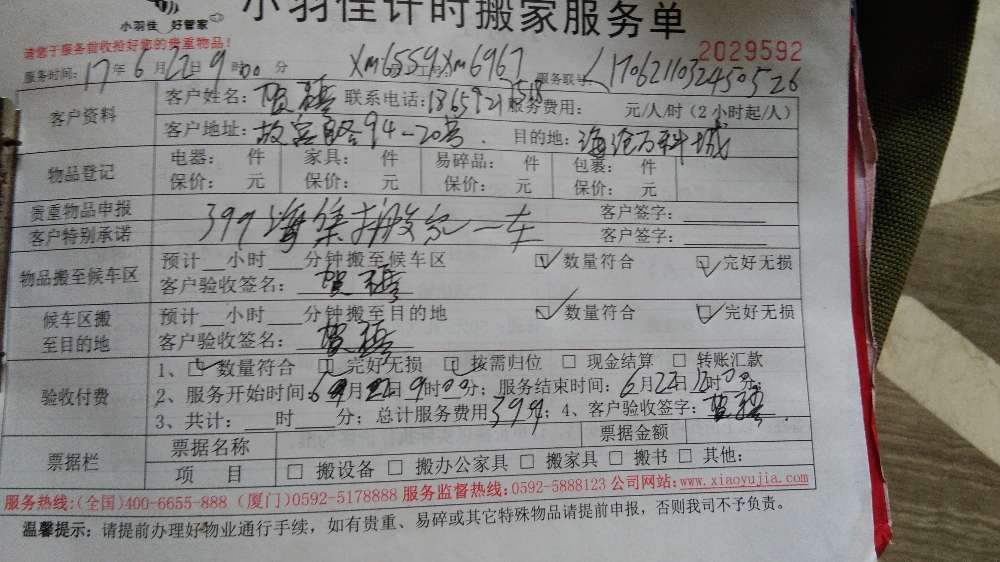 小羽佳 好管家
小羽佳计时搬家服务单
请您于服务前收捡好您的贵重物品！
2029592
服务时间：17年6月22日9时00分 Xm6559 Xm6967 服务联号：1706211032450526
客户资料
客户姓名：贺 联系电话：18659211518 服务费用： 元/人/时（2小时起/人）
客户地址：故宫路94-20号 目的地：海沧万科城
物品登记
电器： 件 家具： 件 易碎品： 件 包裹： 件
保价： 元 保价： 元 保价： 元 保价： 元
贵重物品申报 客户签字：
客户特别承诺 399海集搬家一车 客户签字：
物品搬至候车区
预计 小时 分钟搬至候车区 数量符合 完好无损
客户验收签名：贺
候车区搬至目的地
预计 小时 分钟搬至目的地 数量符合 完好无损
客户验收签名：贺
验收付费
1、数量符合 完好无损 按需归位 现金结算 转账汇款
2、服务开始时间：6月22日9时00分；服务结束时间：6月22日12时0分
3、共计： 时 分；总计服务费用399；4、客户验收签字：贺
票据栏
票据名称 票据金额
项 目 搬设备 搬办公家具 搬家具 搬书 其他：
服务热线：(全国)400-6655-888（厦门)0592-5178888 服务监督热线：0592-5888123 公司网站：www.xiaoyujia.com
温馨提示：请提前办理好物业通行手续，如有贵重、易碎或其它特殊物品请提前申报，否则我司不予负责。